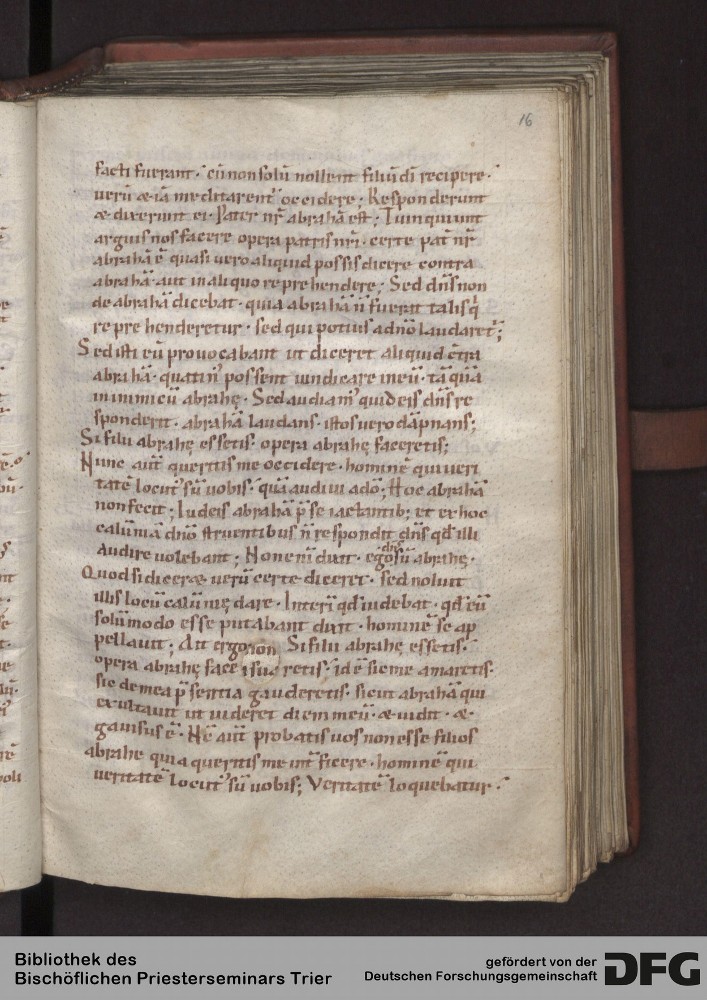 16
facti fuerant · cū non solū nollent filiū dī recipere ·
uerū & iā meditarent᷒ occidere ; Responderunt
& dixerunt ei · Pater nr̄ abrahā est ; Tu inquiunt
arguis nos facere opera patris nr̄i · certe pat̄ nr̄
abrahā ē quasi uero aliquid possis dicere contra
abrahā · aut in aliquo reprehendere ; Sed dn̄s non
de abrahā dicebat · quia abrahā n̄ fuerit talis q
reprehenderetur · sed qui potius a dn̄o laudaret᷒ ;
Sed isti eū prouocabant ut diceret aliquid ctr̄a
abrahā · quatin᷒ possent uindicare in eū · tā quā
inimicū abrahę · Sed audiam᷒ quid eis dn̄s re
sponderit · abrahā laudans · istos uero dāpnans ;
Si filii abrahę essetis · opera abrahę faceretis ;
Nunc aut̄ queritis me occidere · hominē qui ueri
tatē locut᷒ sū uobis · quā audiui a dō ; Hoc abrahā
non fecit ; Iudeis abrahā p̄ se iactantib; et ex hoc
calūniā dn̄o struentibus n̄ respondit dn̄s qd̄ illi
audire uolebant ; Non enī dixit · ego dn̄s sū abrahę ·
Quod si dicer& uerū certe diceret · sed noluit
illis locū calūnię dare · Interī qd̄ uidebat · qd̄ eū
solūmodo esse putabant dixit · hominē se ap
pellauit ; Ait ergo non Si filii abrahę essetis ·
opera abrahę faceretis · id ē sic me amaretis ·
sic de mea p̄sentia gauderetis · sicut abrahā qui
exultauit ut uideret diem meū · & uidit · &
gauisus ē · Nē aut̄ probatis uos non esse filios
abrahe quia queritis me int̄ficere · hominē qui
ueritatē locut᷒ sū uobis ; Veritatē loquebatur ·
Bibliothek des
Bischöflichen Priesterseminars Trier
gefördert von der
Deutschen Forschungsgemeinschaft
DFG